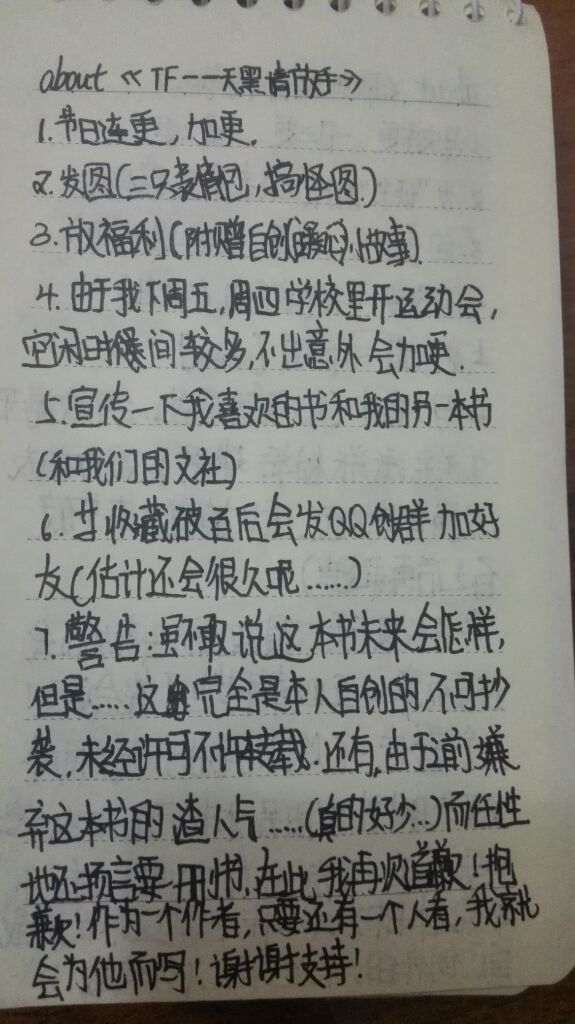 about《TF——天黑请放手》
1.节日连更，加更.
2.发图(三只表情包,搞怪图.)
3.放福利(附赠自创暖心小故事)
4.由于我下周五,周四学校里开运动会,
空闲时间较多,不出意外会加更.
5.宣传一下我喜欢的书和我的另一本书
(和我们的文社)
6.收藏破百后会发QQ创群加好
友(估计还会很久呢……)
7.警告:虽不敢说这本书未来会怎样,
但是……这完全是本人自创的不可抄
袭,未经许可不许转载.还有,由于之前嫌
弃这本书的渣人气……(真的好少…)而任性
地还扬言要删书,在此我再次首歉!抱
歉!作为一个作者,只要还有一个人看,我就
会为他而写!谢谢支持!